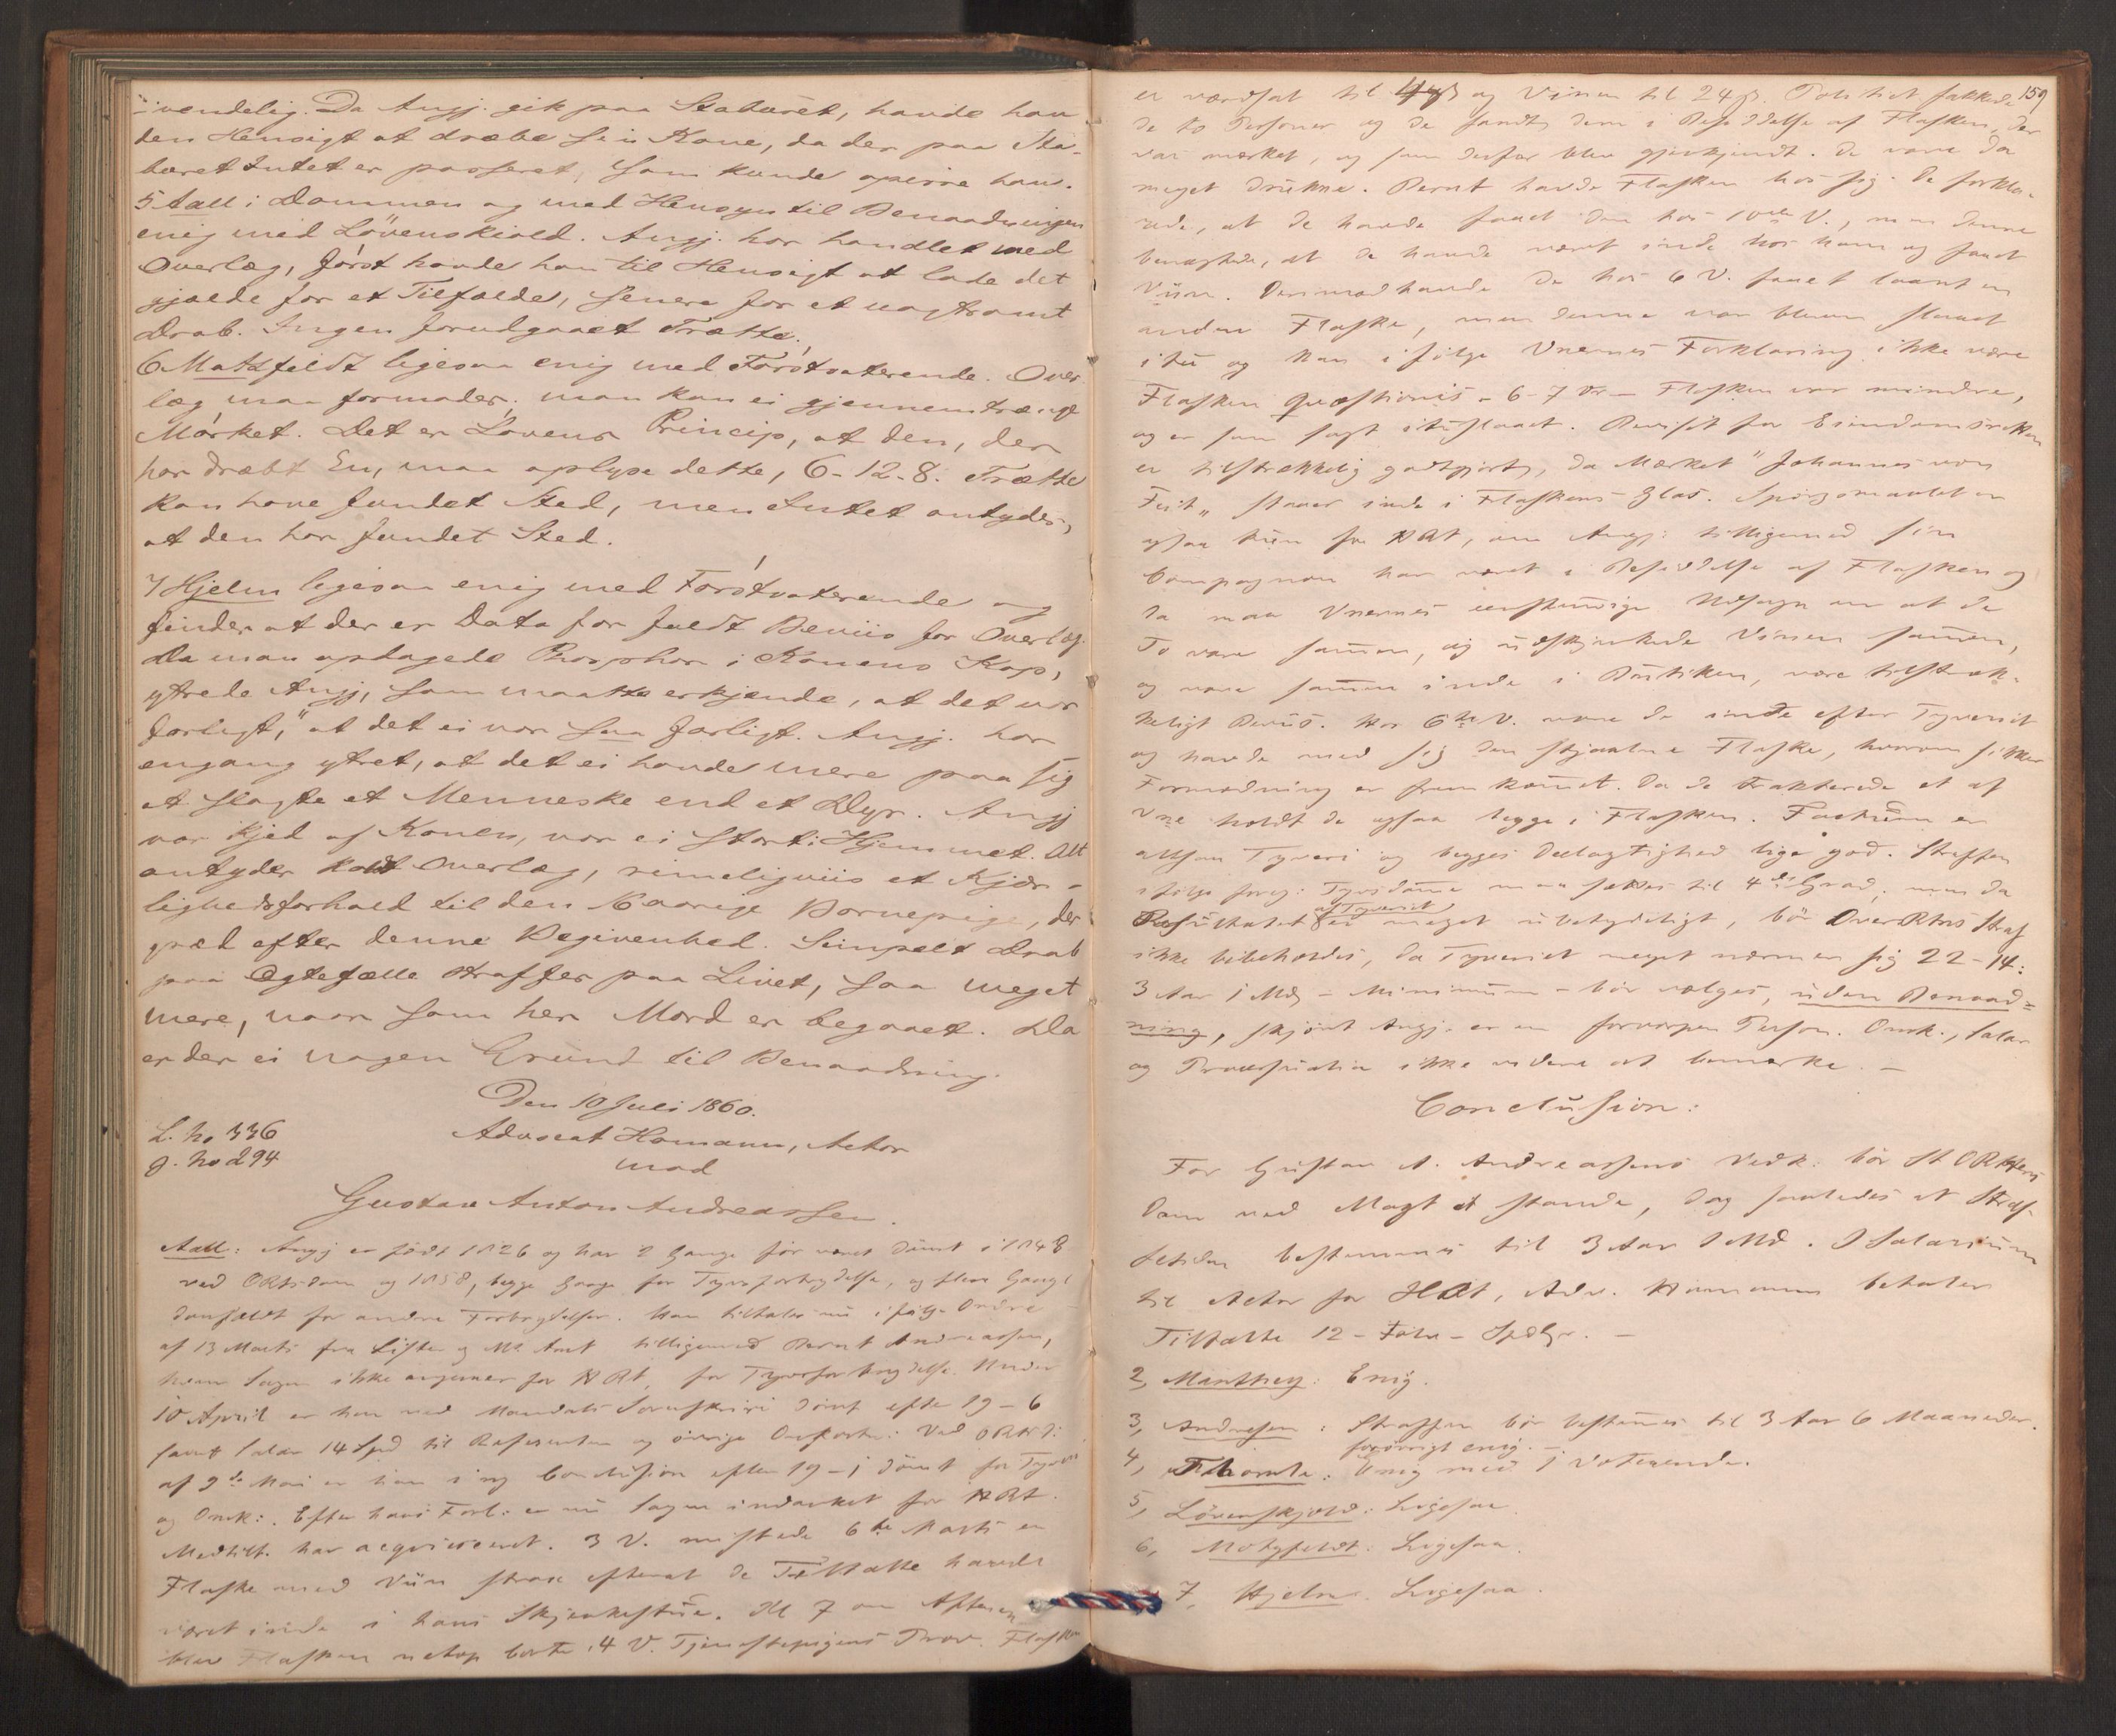 ivendelig. Da Angj. gik paa Staburet, havde han
den Hensigt at dræbe sin Kone, da der paa Sta-
buret Intet er passeret, som kunde opirre ham.
5 Aall i Dommen og med Hensyn til Benaadningen
enig med Lövenskiold. Angj. har handlet med
Overlæg, först havde han til Hensigt at lade det
gjælde for et Tilfælde, senere for et uagtsomt
Drab. Ingen forudgaaet Trætte.
6 Motzfeldt ligesaa enig med Förstvoterende. Over
læg maa formodes; man kan ei gjennemtrænge
Mörket. Det er Lovens Princip, at den, der
har dræbt En, maa oplyse dette, 6-12-8. Trætte
kan have fundet Sted, men Intet antyder,
at den har fundet Sted.
7 Hjelm ligesaa enig med Förstvoterende og
finder at der er Data for fuldt Beviis for Overlæg.
Da man opdagede Phosphor i Konens Kop,
ytrede Angj, som maatte erkjende, at det var
farligt, "at det ei var saa farligt. Angj. har
engang ytret, at det ei havde mere paa sig
at slagte et Menneske end et Dyr. Angj
var kjed af Konen, var ei stort i Hjemmet. Alt
antyder koldt Overlæg, rimeligviis et Kjær-
lighedsforhold til den Barnepige, der
græd efter denne Begivenhed. Simpelt Drab
paa Ægtefælle straffes paa Livet, saa meget
mere, naar som her Mord er begaaet. Da
er der ei nogen Grund til Benaadning.
Den 10 Juli 1860.
L. No 336
g. No 294
Advocat Homann, Actor
mod
Gustav Anton Andreassen.
Aall: Angj er födt 1826 og har 2 Gange för været dömt i 1848
ved ORtsdom og 1858, begge Gange for Tyvsforbrydelse, og flere Gange
domfældt for andre Forbrydelser. Han tiltales nu ifölge Ordre
af 13 Marts fra Lister og Ml Amt tilligemed Bernt Andreassen,
hvem Sagen ikke angaaer for HRt, for Tyvsforbrydelse. Under
10 April er han ved Mandals Sorenskriveri dömt efter 19-6
samt Salær 14 Spd til Defensor og övrige Omkostn: Ved ORtsD:
af 9de Mai er han i ny Conclusion efter 19-1 dömt for Tyveri
og Omk:. Efter hans Forl: er nu Sagen indanket for HRt.
Medtilt. har acqviesceret. 3 V. mistede 6te Marts en
Flaske med Viin strax efterat de Tiltalte havde
været inde i hans Skjenkestue. Kl 7 om Aftenen
blev Flasken netop borte, 4 V. Tjenestepigens Prov. Flasken
159
er værdsat til 4 ß og Vinen til 24 ß. Politiet
de to Personer og de fandtes dem i Besiddelse af Flasken, der
var mærket, og som derfor blev gjenkjendt. De vare da
meget drukne. Bernt havde Flasken hos sig. De forkla-
rede, at de havde faaet den hos 10de V., men denne
benægtede, at de havde været inde hos ham og faaet
Viin. Derimod havde de hos 6 V. faaet laant en
anden Flaske, men denne var bleven slaaet
itu og kan ifölge Vnernes Forklaring ikke være
Flasken qvæstionis - 6-7 Vr - Flasken var mindre,
og er som sagt ituslaaet. Beviset for Eiendomsretten
er tilstrækkelig godtgjort, da Mærket "Johannes von
" staaer inde i Flaskens Glas. Spörgsmaalet er
ogsaa kun for HRt, om Angj: tilligemed sin
Compagnon har været i Besiddelse af Flasken og
da maa Vnernes eenstemmige Udsagn om at de
To vare sammen, og udskjenkede Vinen sammen,
og vare sammen inde i Butiken, være tilstræk-
keligt Beviis. Hos 6te V. vare de inde efter Tyveriet
og havde med sig den stjaalne Flaske, hvorom sikker
Formodning er fremkommet. Da de trakterede et af
Vne holdt de ogsaa begge i Flasken. Factum er
altsaa Tyveri og begges Deelagtighed lige god. Straffen
ifölge foreg: Tyvsdomme maa sættes til 4de Grad, men da
Resultatet af Tyveriet er meget ubetydeligt, bör OverRtens Straf
ikke bibeholdes, da Tyveriet meget nærmer sig 22-14:
3 Aar 1 Md - Minimum - bör vælges, uden Benaad=
ning, skjönt Angj. er en forvorpen Person. Omk., Salær
og Procesfuatia ikke videre at bemærke. -
Conclusion:
For Gustav A. Andreassens Vedk: bör St ORettens
Dom ved Magt at stande, dog saaledes at Straf-
fetiden bestemmes til 3 Aar 1 Md. I Salarium
til Actor for HRt, Adv. Homann betaler
Tiltalte 12 - Tolv - Spdlr. -
2, Manthey: Enig.
3, Andresen: Straffen bör bestemmes til 3 Aar 6 Maaneder.
forövrigt enig. -
4, Thomle: Enig med 1 Voterende.
5, Lövenskjold: Ligesaa.
6, Motzfeldt: Ligesaa.
7, Hjelm. Ligesaa.